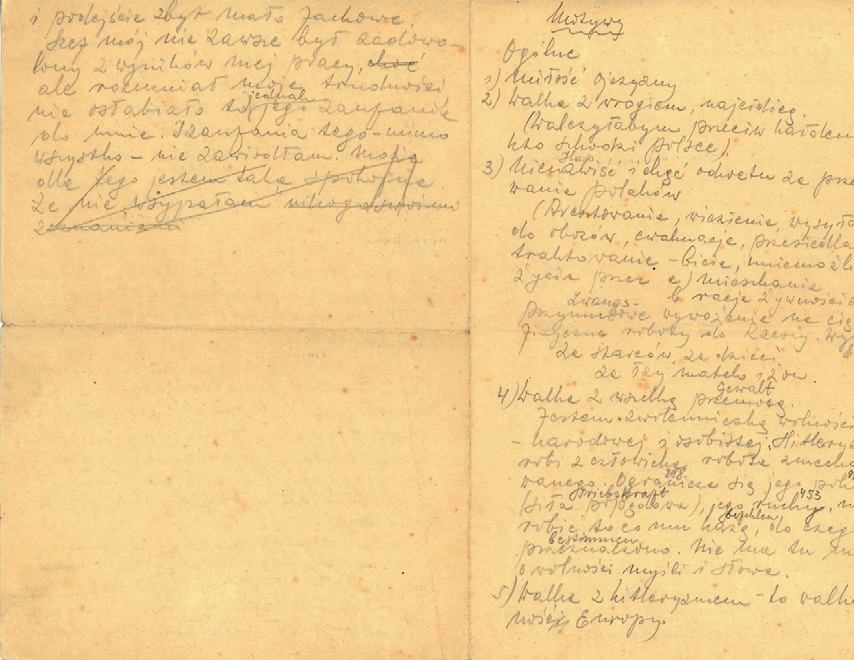 i podejście zbyt mało fachowe.
Szef mój nie zawsze był zadowo-
lony z wyników mej pracy, choć
ale rozumiał moje trudności
jednak
nie osłabiało to jego zaufanie
do mnie. I zaufania tego - mimo
wszystko - nie zawiodłam. Może
dla tego jestem taka spokojna
że nie wsypałam nikogo swoimi
zeznaniami
Motywy
Ogólne
1) Miłość ojczyzny
2) Walka z wrogiem, najeźdźcą.
(Walczyłabym przeciw każdem
kto szkodzi Polsce).
3) Nienawiść i chęć odwetu za prze
wanie Polaków
(Aresztowanie, więzienie, wysyła
do obozów, ewakuacje, przesiedla
traktowanie - bicie, uniemożli
życia przez a) mieszkanie
b racje żywności
Zwangs-
przymusowe wywożenie na cię
fizyczne roboty do Rzeszy.
Za starców, za dzieci
za łzy matek i żon.
Gewalt
4) Walka z wszelką przemocą.
Jestem zwolenniczką wolności
- narodowej i osobistej. Hitlery
robi z człowieka robota zmecha
wanego. Ogranicza się jego
308
Triebskraft
453
(siła popędowa), jego ruchy,
befehlen
robić to co mu każą, do czeg
bestimmen
przeznaczono. Nie ma tu
o wolności myśli i słowa.
5) Walka z hitleryzmem - to walka
Europy.